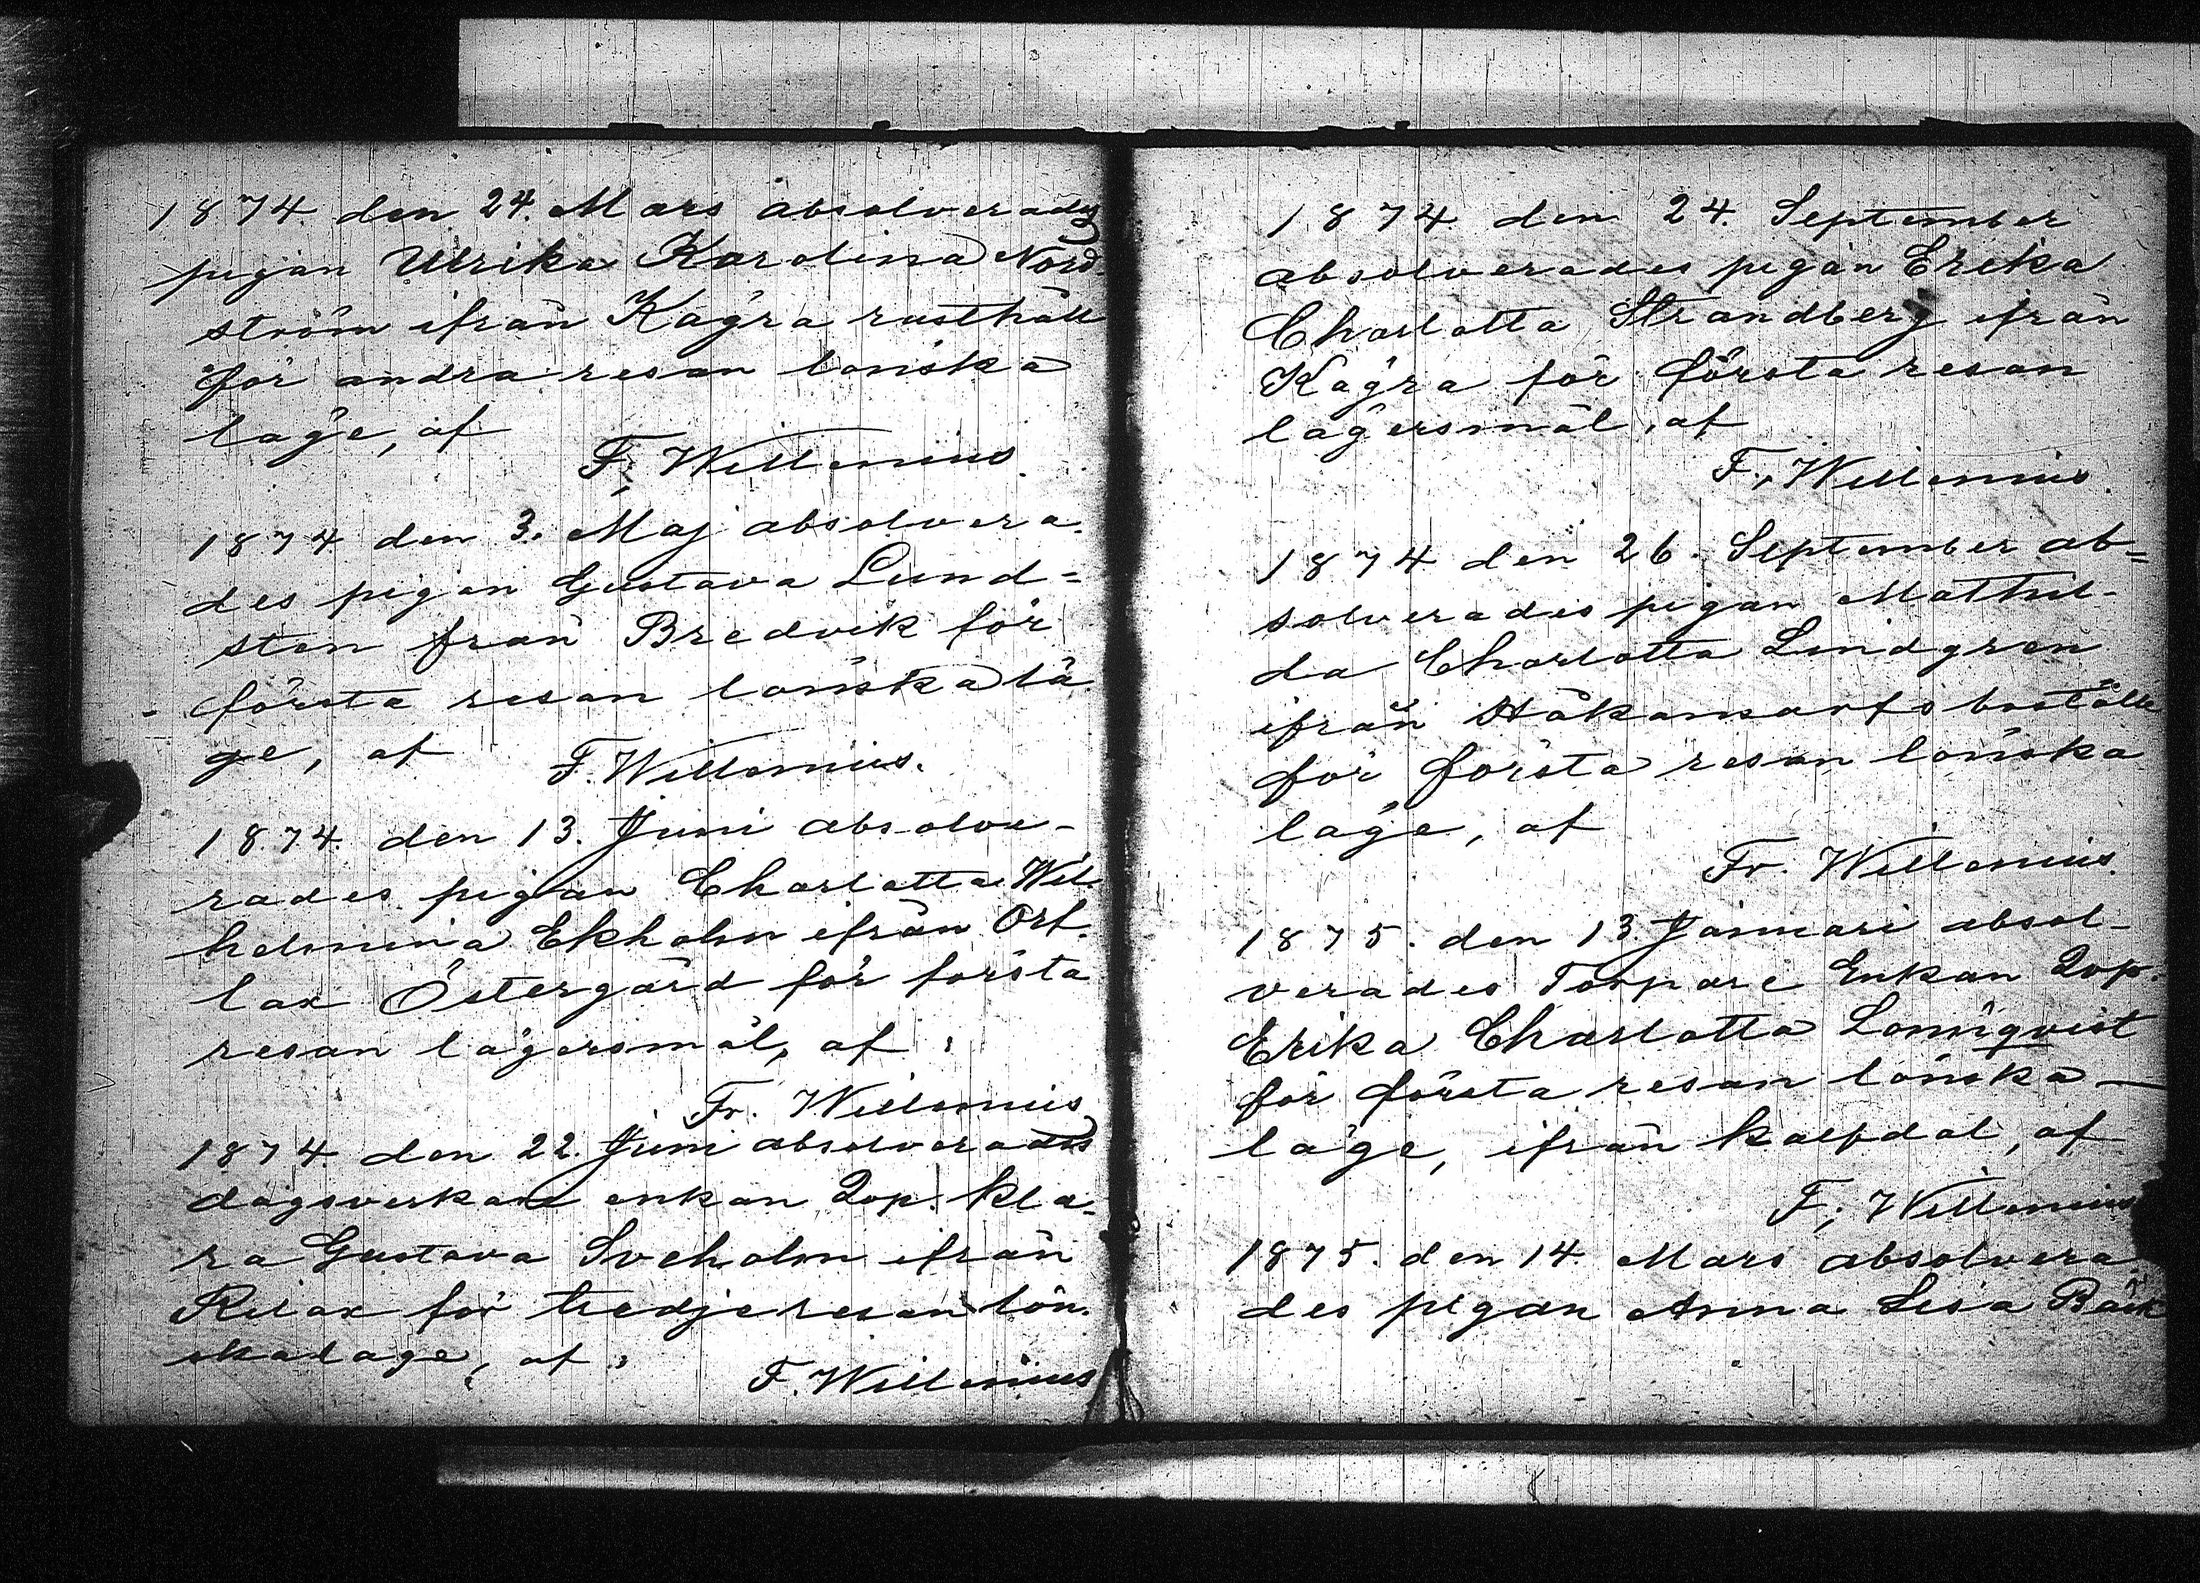 1874 den 24. Mars absolverades
pigan Ulrika Karolina Nord-
ström ifrån Kågra rusthåll
för andra resan lönska
läge, af
F. Willenius.
1874 den 3. Maj absolvera-
des pigan Gustava Lund=
sten från Bredvik för
första resan lönska lä-
ge, af
F. Willenius.
1874. den 13. Juni absolve-
rades pigan Charlotta Wil-
helmina Ekholm ifrån Ort-
lax Östergård för första
resan lägersmål, af
Fr. Willenius
1874. den 22. Juni absolverades
dagsverkare enkan Qvp. Kla-
ra Gustava Sveholm ifrån
Rilax för tredje resan lön-
skaläge, af
F. Willenius
1874 den 24. September
absolverades pigan Erika
Charlotta Strandberg ifrån
Kågra för första resan
lägersmål, af
F. Willenius.
1874 den 26. September ab=
solverades pigan Mathil-
da Charlotta Lindgren
ifrån Håkansarfs boställe
för första resan lönska
läge, af
Fr. Willenius.
1875. den 13. Januari absol-
verades Torpare Enkan Qvp.
Erika Charlotta Lönnqvist
för första resan lönska
läge, ifrån Kalfdal, af
F. Willenius
1875. den 14. Mars absolvera-
des pigan Anna Lisa Bäck